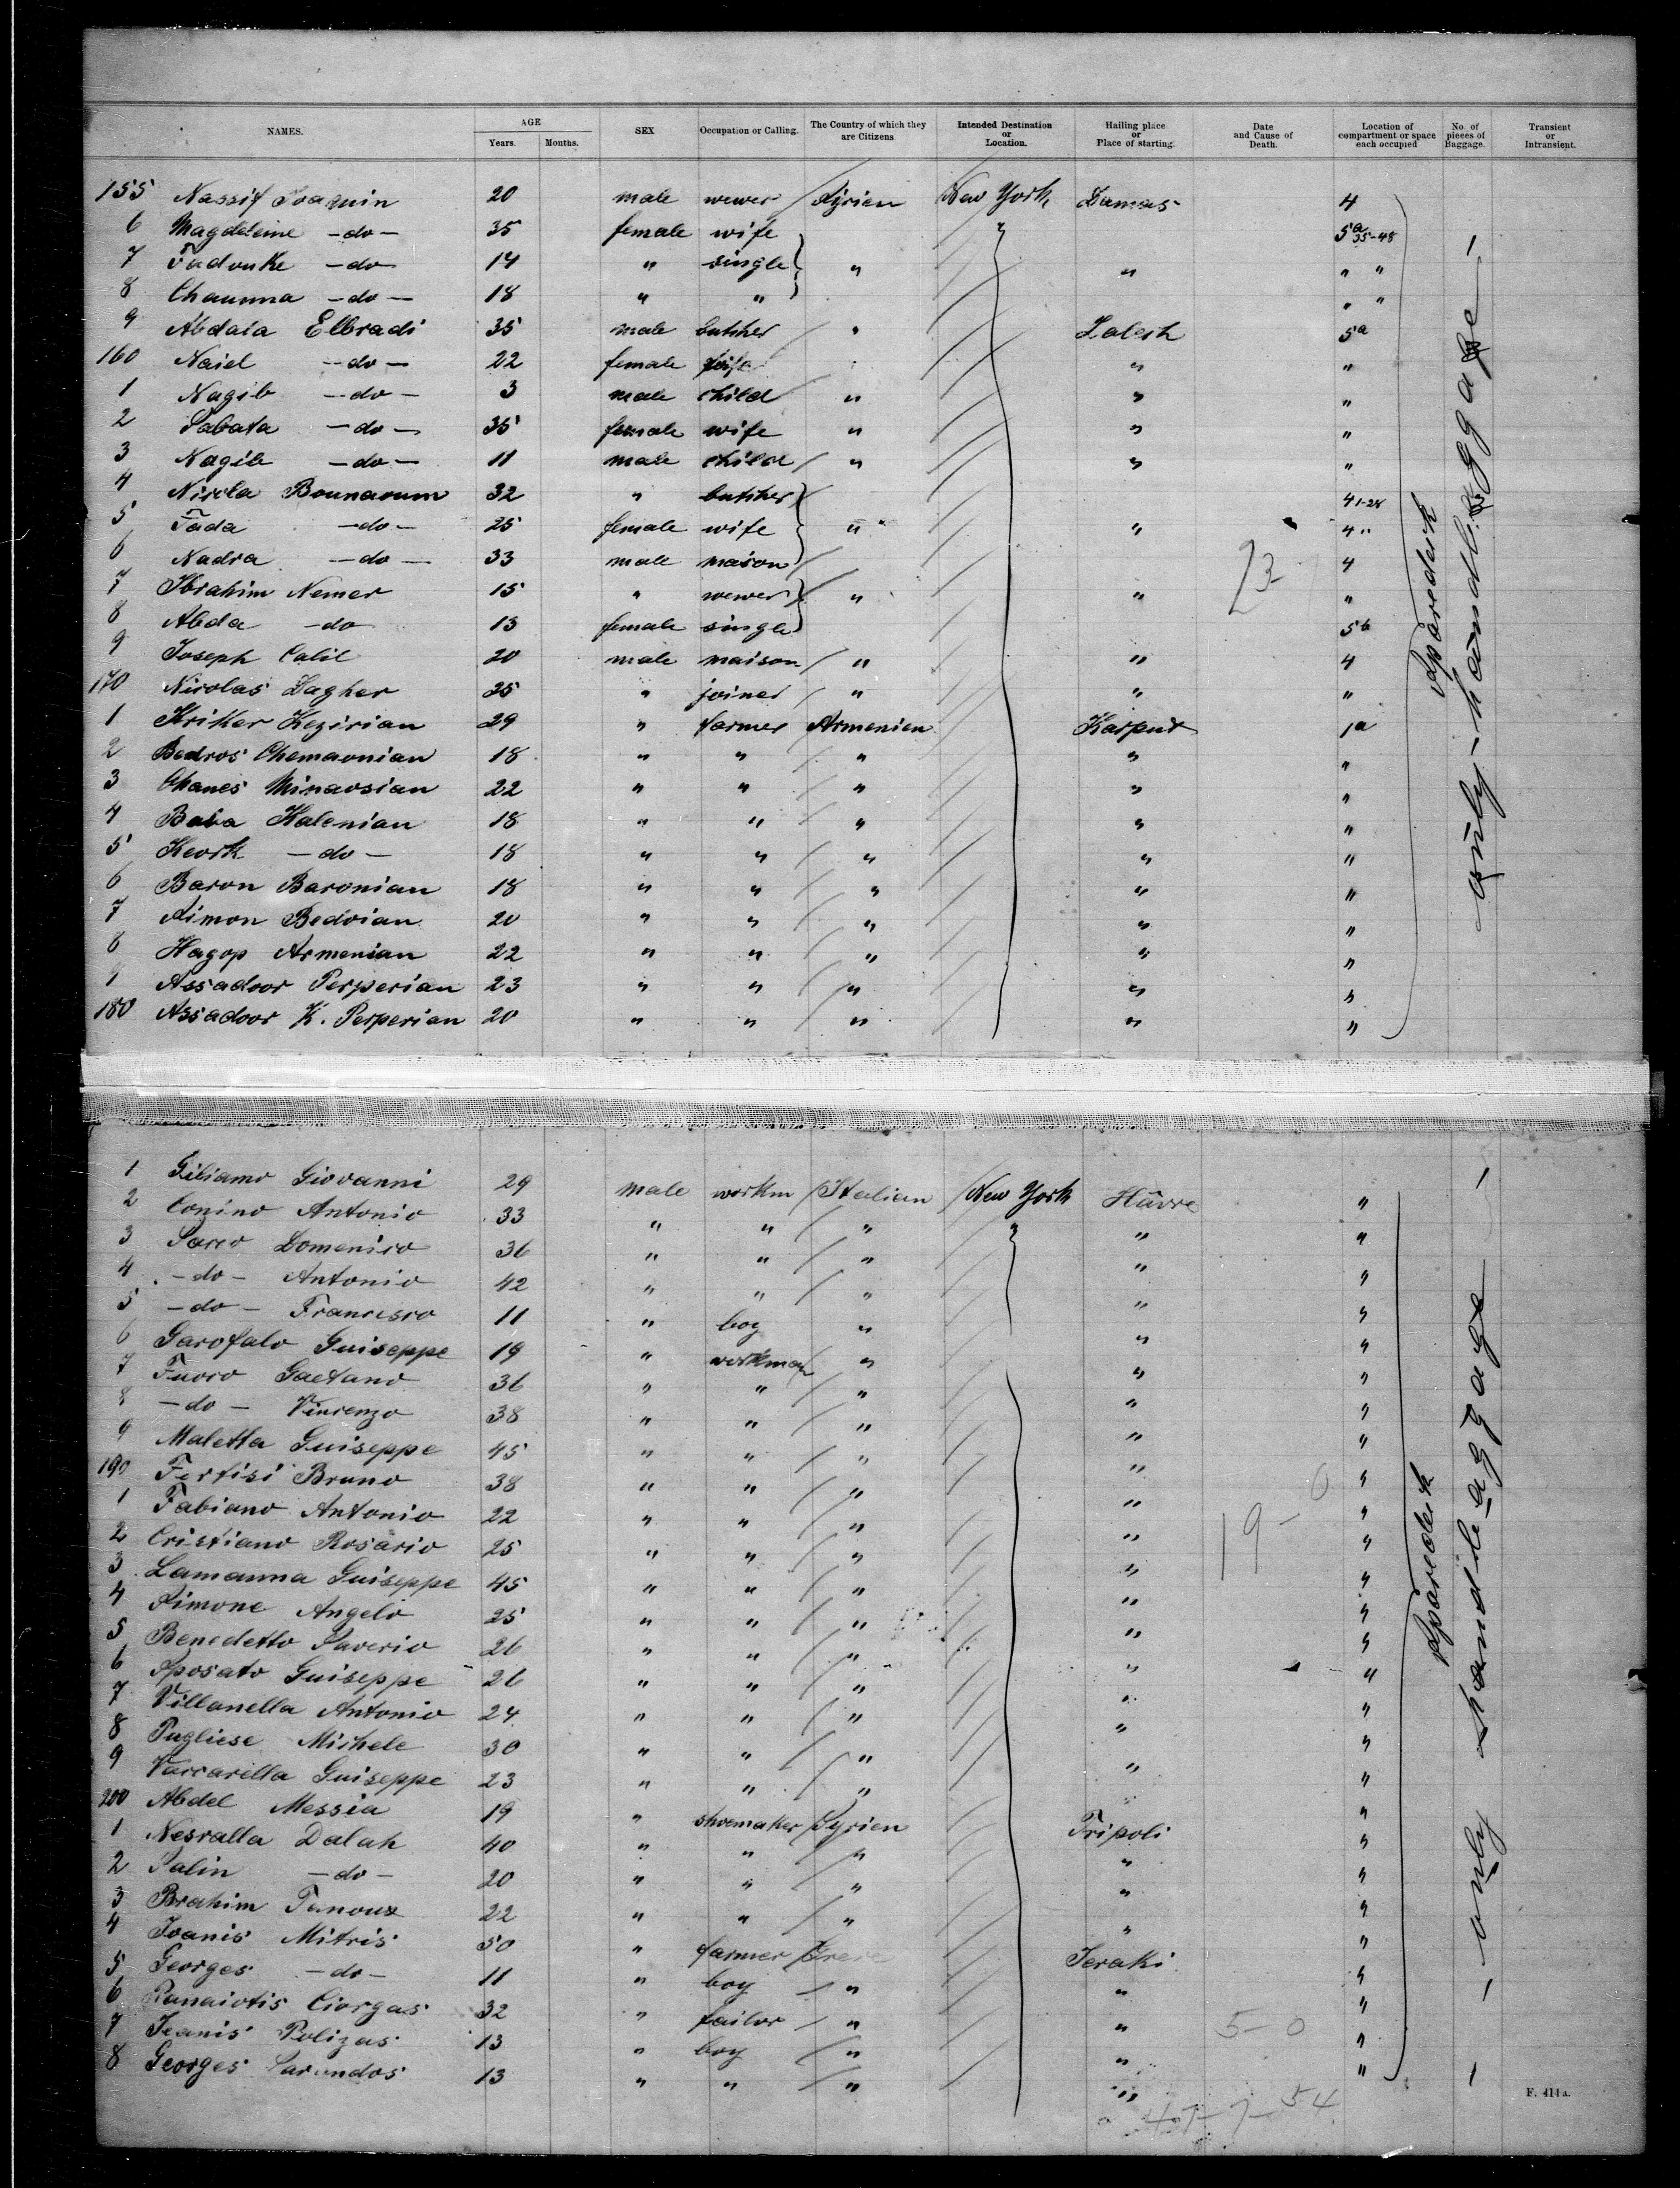 NAMES. AGE Years. Months. SEX Occupation or Calling. The Country of which they are Citizens Intended Destination or Location. Hailing place or Place of starting. Date and Cause of Death. Location of compartment or space each occupied No. of pieces of Baggage. Transient or Intransient.
155 Nassif Joaquin 20 male wewer Syrien New York Damas 4
6 Magdeleine -do- 35 female wife " 5a 35-48
7 Fadouke -do- 14 " single " " " "
8 Chaumna -do- 18 " " " "
9 Abdala Elbradi 35 male butcher " Zalesh 5a
160 Naid -do- 22 female wife " "
1 Nagib -do- 3 male child " " "
2 Sabata -do- 35 female wife " " "
3 Nagib -do- 11 male child " " "
4 Nicola Bounaoum 32 " butcher 4 1-28
5 Fada -do- 25 female wife " " 4 "
6 Nadra -do- 33 male maison 4
7 Ibrahim Nemer 15 " wewer " " "
8 Abda -do- 13 female single 5b
9 Joseph Calil 20 male maison " " 4
170 Nicolas Dagher 25 " joiner " " "
1 Kriker Kezirian 29 " farmer Armenien Karput 1a
2 Bedros Chemaonian 18 " " " " "
3 Ohanes Minaosian 22 " " " " "
4 Baba Kalenian 18 " " " " "
5 Keork -do- 18 " " " " "
6 Baron Baronian 18 " " " " "
7 Simon Bedoian 20 " " " " "
8 Hagop Armenian 22 " " " " "
1 Assadoor Perperian 23 " " " " "
180 Assadoor K. Perperian 20 " " " " "
23
Sparedeck
only - handbaggage -
1 Gibiamo Giovanni 29 male workm Italian New York Hâvre "
2 Conino Antonio 33 " " " " " "
3 Sacco Domenico 36 " " " " "
4 -do- Antonio 42 " " " " "
5 -do- Francesco 11 " boy " " "
6 Garofalo Guiseppe 19 " workman " " "
7 Fuoco Gaetano 36 " " " " "
8 -do- Vincenzo 38 " " " " "
9 Maletta Guiseppe 45 " " " " "
190 Fertisi Bruno 38 " " " " "
1 Fabiano Antonio 22 " " " " "
2 Cristiano Rosario 25 " " " " "
3 Lamanna Guiseppe 45 " " " " "
4 Simone Angelo 25 " " " " "
5 Benedetto Saverio 26 " " " " "
6 Sposato Guiseppe 26 " " " " "
7 Villanella Antonio 24 " " " " "
8 Pugliese Michele 30 " " " " "
9 Vaccarella Guiseppe 23 " " " " "
200 Abdel Messia 19 " shoemaker Syrien Tripoli "
1 Nesralla Dalah 40 " " " " "
2 Salin -do- 20 " " " " "
3 Brahim Tanous 22 " " " " "
4 Ioanis Mitris 50 " farmer Jeraki "
5 Georges -do- 11 " boy " " "
6 Panaiotis Ciorgas 32 " tailor " " "
7 Jeanis Polizas 13 " boy " " "
8 Georges Sarandos 13 " " " "
19 - 0
5 - 0
47-7-54
Sparedeck
- only handbaggage -
F. 414a.